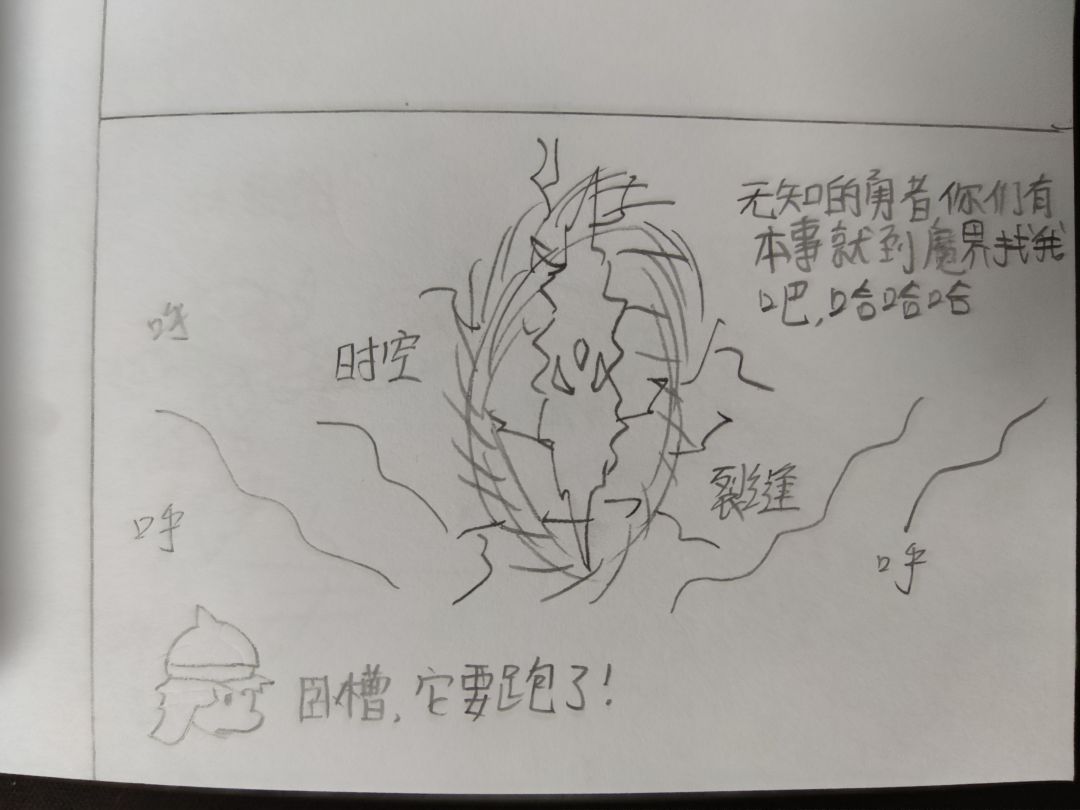 无知的勇者,你们有
本事就到魔界找我
吧,哈哈哈
时空
裂缝
呼
呼
卧槽,它要跑了!